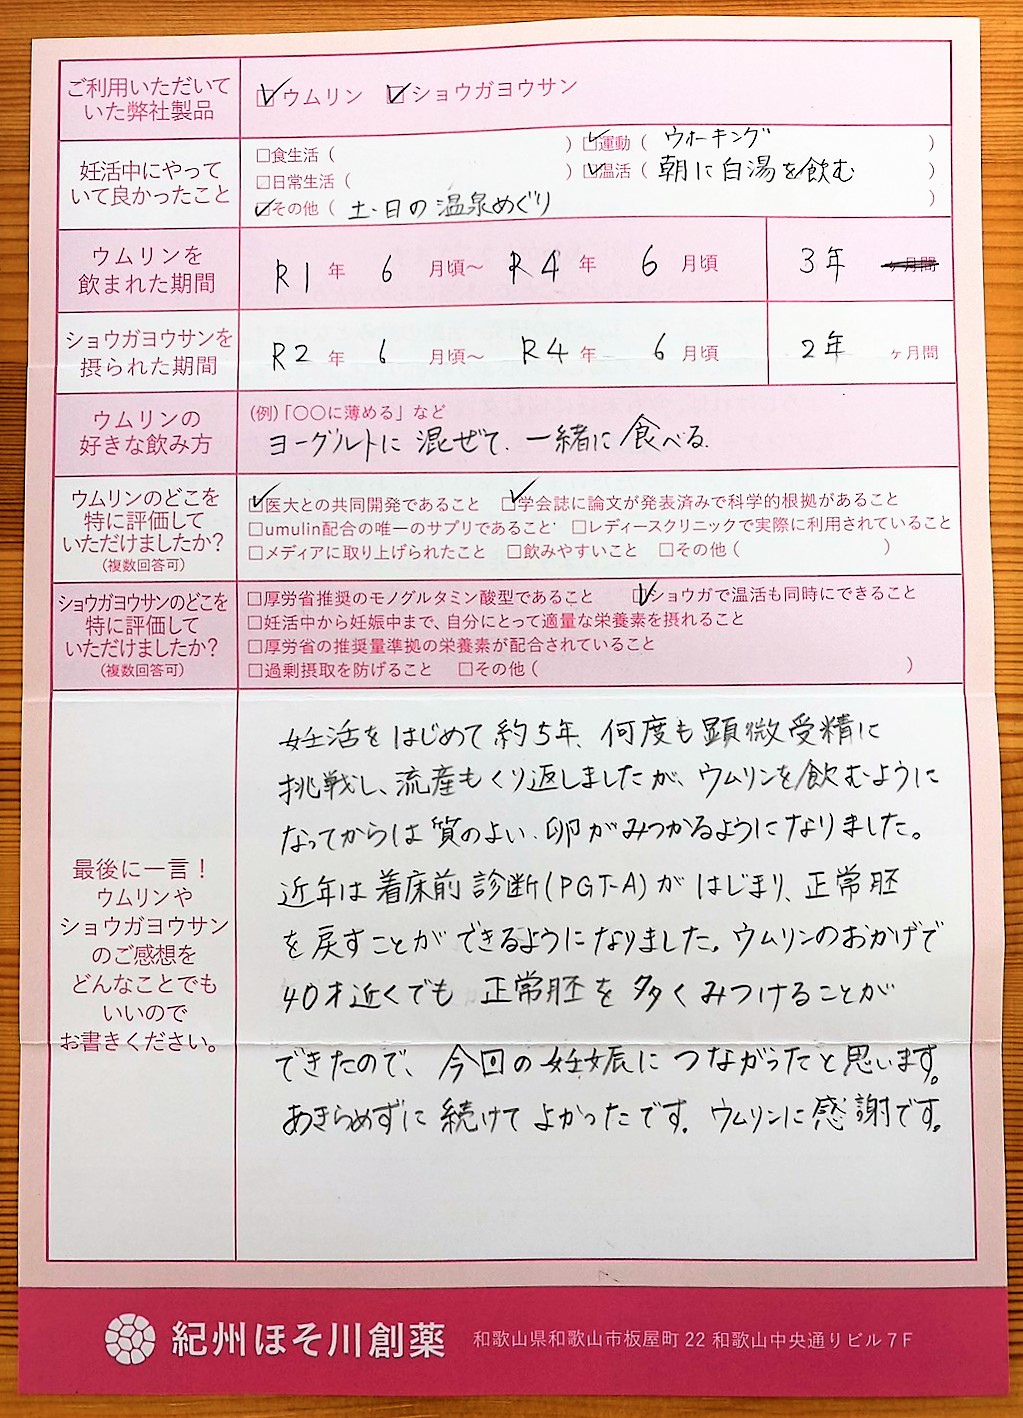 ご利用いただいて
いた弊社製品
☑ウムリン ☑ショウガヨウサン
妊活中にやって
いて良かったこと
□食生活( ) ☑運動( ウォーキング )
□日常生活( ) ☑温活( 朝に白湯を飲む )
☑その他( 土・日の温泉めぐり )
ウムリンを
飲まれた期間
R1年 6月頃〜 R4年 6月頃 3年 ヶ月間
ショウガヨウサンを
摂られた期間
R2年 6月頃〜 R4年 6月頃 2年 ヶ月間
ウムリンの
好きな飲み方
(例)「○○に薄める」など
ヨーグルトに混ぜて、一緒に食べる。
ウムリンのどこを
特に評価して
いただけましたか?
(複数回答可)
☑医大との共同開発であること ☑学会誌に論文が発表済みで科学的根拠があること
□umulin配合の唯一のサプリであること □レディースクリニックで実際に利用されていること
□メディアに取り上げられたこと □飲みやすいこと □その他( )
ショウガヨウサンのどこを
特に評価して
いただけましたか?
(複数回答可)
□厚労省推奨のモノグルタミン酸型であること ☑ショウガで温活も同時にできること
□妊活中から妊娠中まで、自分にとって適量な栄養素を摂れること
□厚労省の推奨量準拠の栄養素が配合されていること
□過剰摂取を防げること □その他( )
最後に一言!
ウムリンや
ショウガヨウサン
のご感想を
どんなことでも
いいので
お書きください。
妊活をはじめて約5年、何度も顕微受精に
挑戦し、流産もくり返しましたが、ウムリンを飲むように
なってからは質のよい、卵がみつかるようになりました。
近年は着床前診断(PGT-A)がはじまり、正常胚
を戻すことができるようになりました。ウムリンのおかげで
40才近くでも正常胚を多くみつけることが
できたので、今回の妊娠につながったと思います。
あきらめずに続けてよかったです。ウムリンに感謝です。
紀州ほそ川創薬 和歌山県和歌山市板屋町 22 和歌山中央通りビル 7F